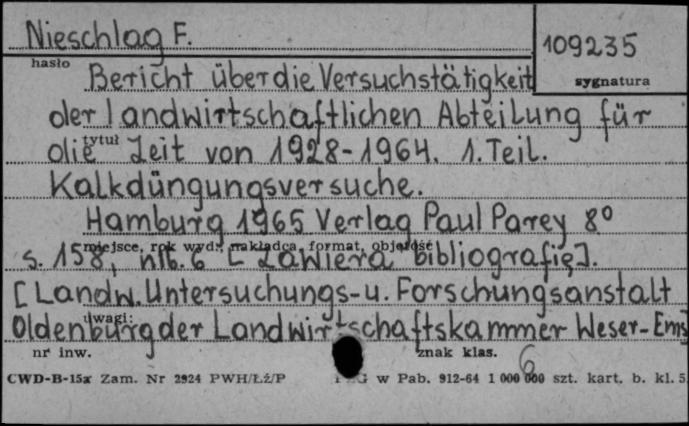 Nieschlag F.
109235
hasło
sygnatura
Bericht über die Versuchstätigkeit
der landwirtschaftlichen Abteilung für
tytuł
die Zeit von 1928-1964. 1. Teil.
Kalkdüngungsversuche.
Hamburg 1965 Verlag Paul Parey 8°
miejsce, rok wyd., nakładca, format, objętość
s. 158, nlb. 6 [Zawiera bibliografię].
[Landw. Untersuchungs- u. Forschungsanstalt
uwagi:
Oldenburg der Landwirtschaftskammer Weser-Ems]
nr inw.
znak klas.
6
CWD-B-15a Zam. Nr 2924 PWH/Łż/P
w Pab. 912-64 1 000 000 szt. kart. b. kl. 5